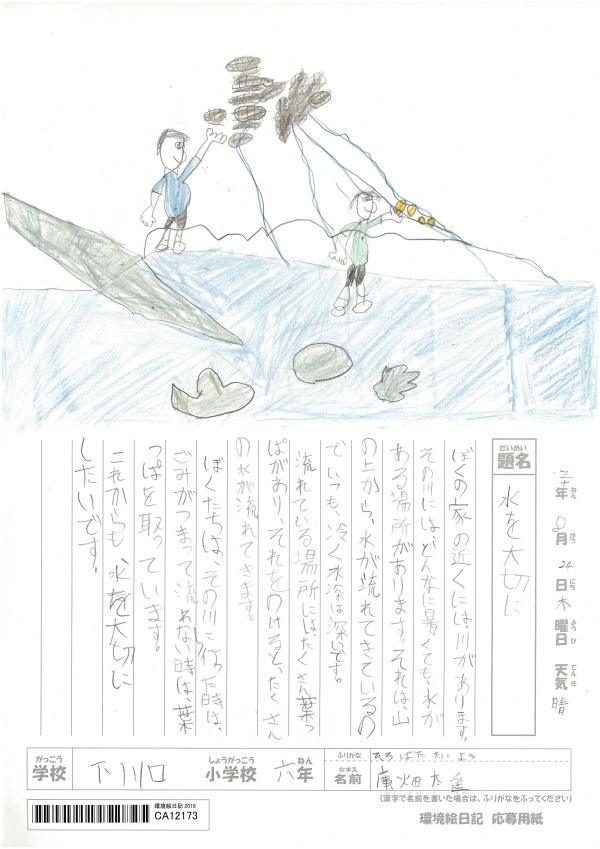 三十年 8月 24日 木曜日 天気 晴
ねん がつ にち ようび てんき
だいめい
題名
水を大切に
ぼくの家の近くには川があります。
その川には、どんなに暑くても、水が
ある場所があります。それは、山
の上から、水が流れてきているの
で、いつも、冷く水深は深いです。
流れている場所には、たくさん葉っ
ぱがあり、それをのけると、たくさん
の水が流れてきます。
ぼくたちは、その川に行った時は、
ごみがつまって流れない時は、葉
っぱを取っています。
これからも、水を大切に
したいです。
がっこう しょうがっこう ねん
学校 下川口 小学校 六年
ふりがな ひろ ばた たい よう
なまえ
名前 廣畑太遥
(漢字で名前を書いた場合は、ふりがなをふってください)
環境絵日記 2018
CA12173
環境絵日記 応募用紙